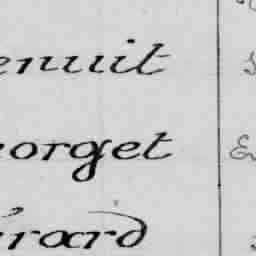 enuit
eorget
érard